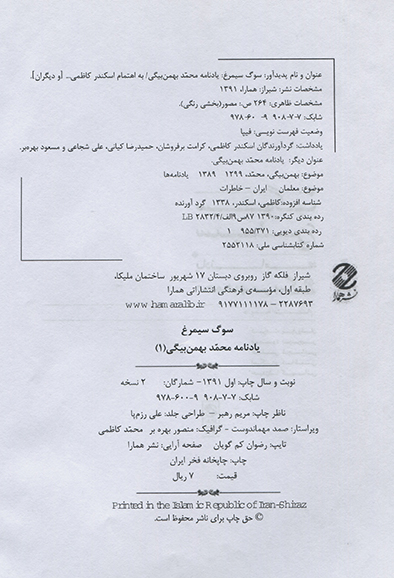 عنوان و نام پدیدآور: سوگ سیمرغ: یادنامه محمّد بهمن‌بیگی/ به اهتمام اسکندر کاظمی... [و دیگران].
مشخصات نشر: شیراز: همارا، ۱۳۹۱
مشخصات ظاهری: ۲۶۴ ص.: مصور(بخشی رنگی).
شابک: ۷-۷- ۹۰۸ ۹- ۶۰-۹۷۸
وضعیت فهرست نویسی: فیپا
یادداشت: گردآورندگان اسکندر کاظمی، کرامت برفروشان، حمیدرضا کیانی، علی شجاعی و مسعود بهره‌بر.
عنوان دیگر: یادنامه محمّد بهمن‌بیگی.
موضوع: بهمن‌بیگی، محمّد، ۱۲۹۹ ۱۳۸۹ یادنامه‌ها
موضوع: معلمان ایران – خاطرات
شناسه افزوده: کاظمی، اسکندر، ۱۳۳۸ گرد آورنده
رده بندی کنگره: ۱۳۹۰ ۸۷س۹الف/۲۸۳۲/۴ LB
رده بندی دیویی: ۹۵۵/۳۷۱ ۱
شماره کتابشناسی ملی: ۲۵۵۳۱۱۸
شیراز فلکه گاز روبروی دبستان ۱۷ شهریور ساختمان ملیکا،
طبقه اول، مؤسسه‌ی فرهنگی انتشاراتی همارا
۲۲۸۷۶۹۳ – ۹۱۷۷۱۱۱۱۷۸ www.hamaralib.ir
نشر همارا
سوگ سیمرغ
یادنامه محمّد بهمن‌بیگی(۱)
نوبت و سال چاپ: اول ۱۳۹۱– شمارگان: ۲ نسخه
شابک: ۷-۷- ۹۰۸ ۹-۶۰۰-۹۷۸
ناظر چاپ: مریم رهبر – طراحی جلد: علی رزم‌پا
ویراستار: صمد مهماندوست - گرافیک: منصور بهره بر محمّد کاظمی
تایپ: رضوان کم گویان صفحه آرایی: نشر همارا
چاپ: چاپخانه فخر ایران
قیمت: ۷ ریال
Printed in the Islamic Republic of Iran-Shiraz
© حق چاپ برای ناشر محفوظ است.